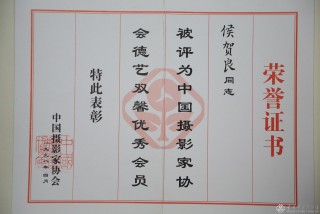 荣誉证书
侯贺良同志
被评为中国摄影家协
会德艺双馨优秀会员
特此表彰
中国摄影家协会